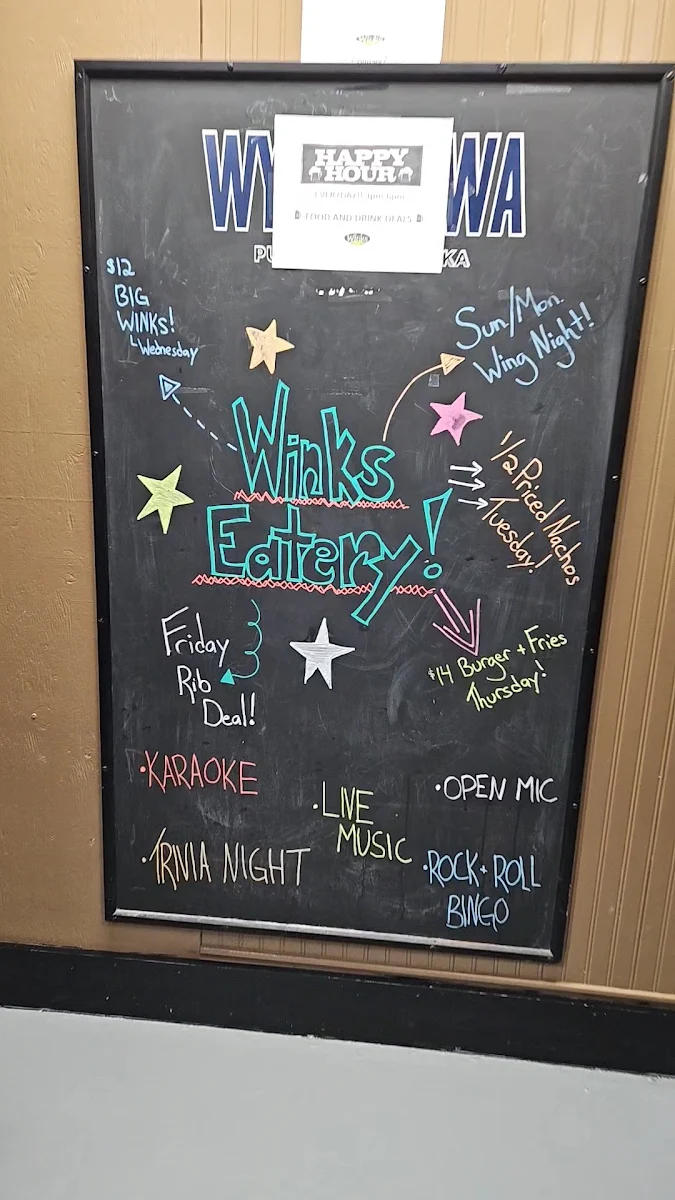 HAPPY
HOUR
EVERYDAY! 3pm-6pm
FOOD AND DRINK DEALS
Winks
$12
BIG
WINKS!
Wednesday
Sun/Mon
Wing Night!
Winks
Eatery!
1/2 Priced Nachos
Tuesday!
Friday
Rib
Deal!
$14 Burger + Fries
Thursday!
•KARAOKE
•LIVE
MUSIC
•OPEN MIC
•TRIVIA NIGHT
•ROCK+ROLL
BINGO